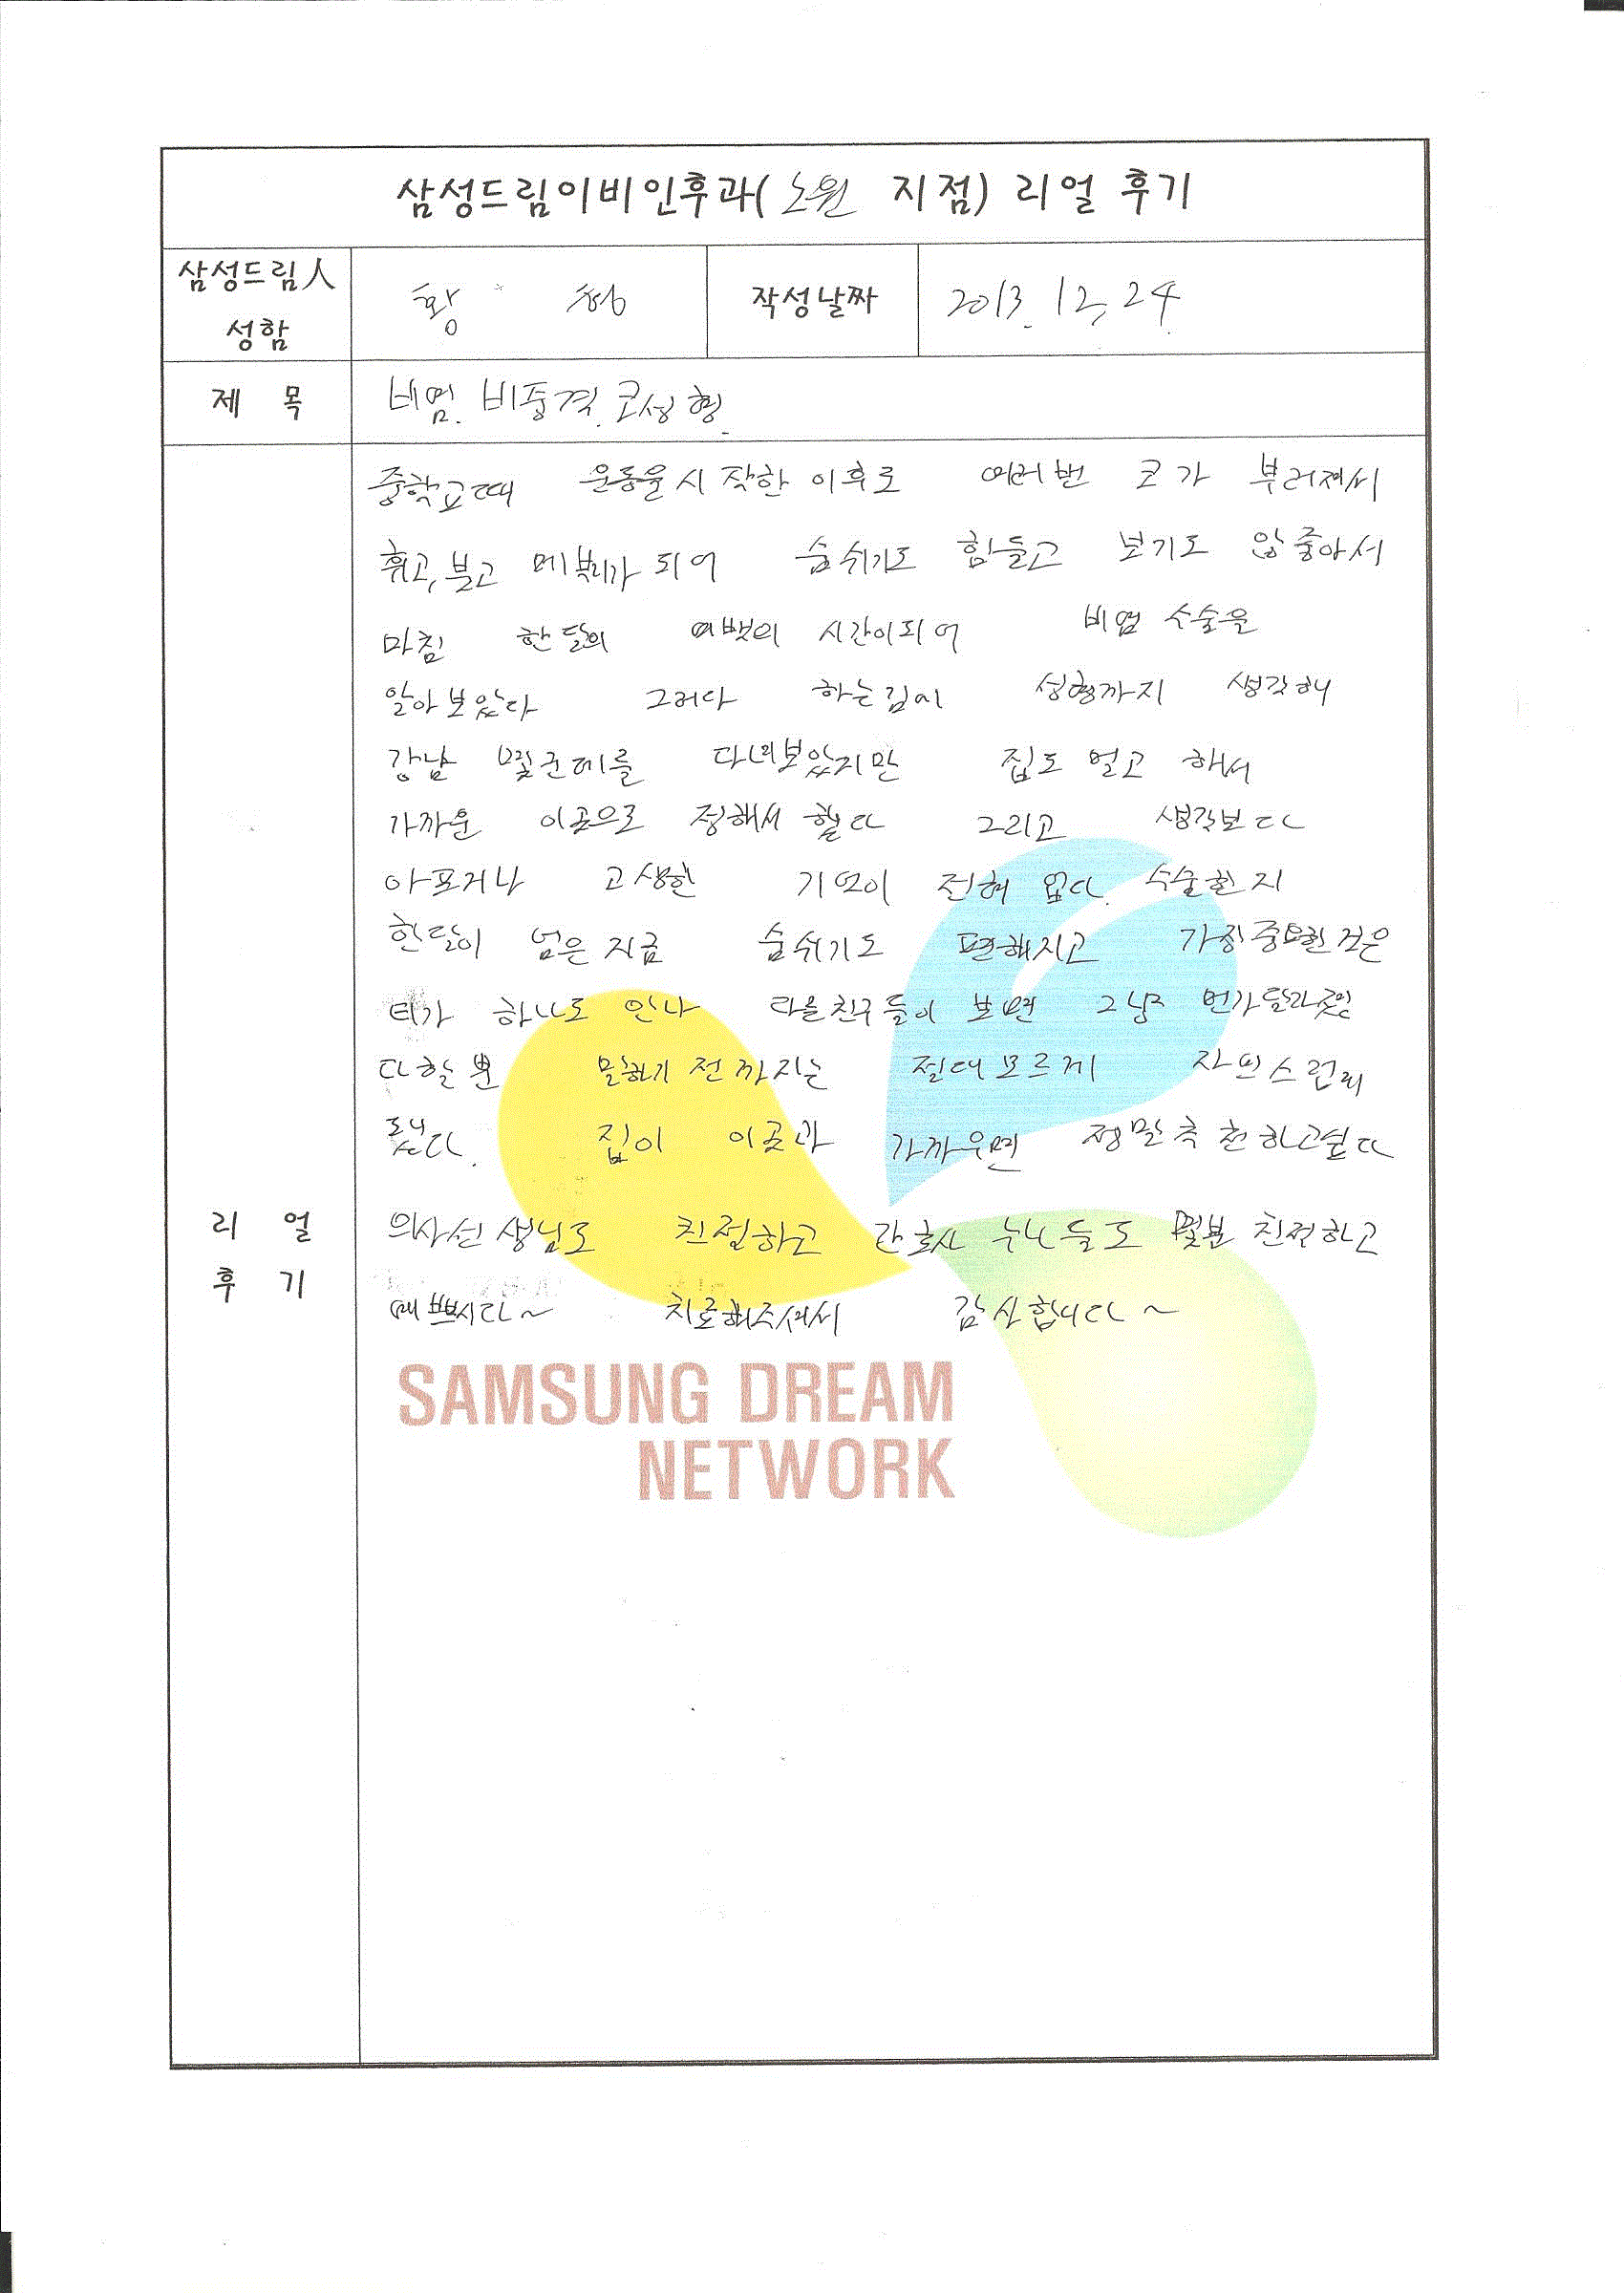 삼성드림이비인후과(노원 지점) 리얼 후기
삼성드림人
성함
황 * 청
작성날짜
2013. 12, 24
제 목
비염. 비중격. 코성형
중학교때 운동을시작한 이후로 여러번 코가 부러져서
휘고, 붇고 메부리가 되어 숨쉬기도 힘들고 보기도 않좋아서
마침 한달의 여백의 시간이되어 비염 수술을
알아보았다 그러다 하는김에 성형까지 생각해
강남 몇군데를 다녀보았지만 집도 멀고 해서
가까운 이곳으로 정해서 했다 그리고 생각보다
아프거나 고생한 기억이 전혀 없다. 수술한지
한달이 넘은지금 숨쉬기도 편해지고 가장중요한것은
티가 하나도 안나 다른친구들이 보면 그냥 먼가달라졌
다할뿐 말하기전까지는 절대모르게
됬다. 집이 이곳과 가까우면 정말추천하고싶다
의사선생님도 친절하고 간호사 누나들도 몇분 친절하고
예쁘시다~ 치료해주셔서 감사합니다~
리 얼
후 기
SAMSUNG DREAM
NETWORK